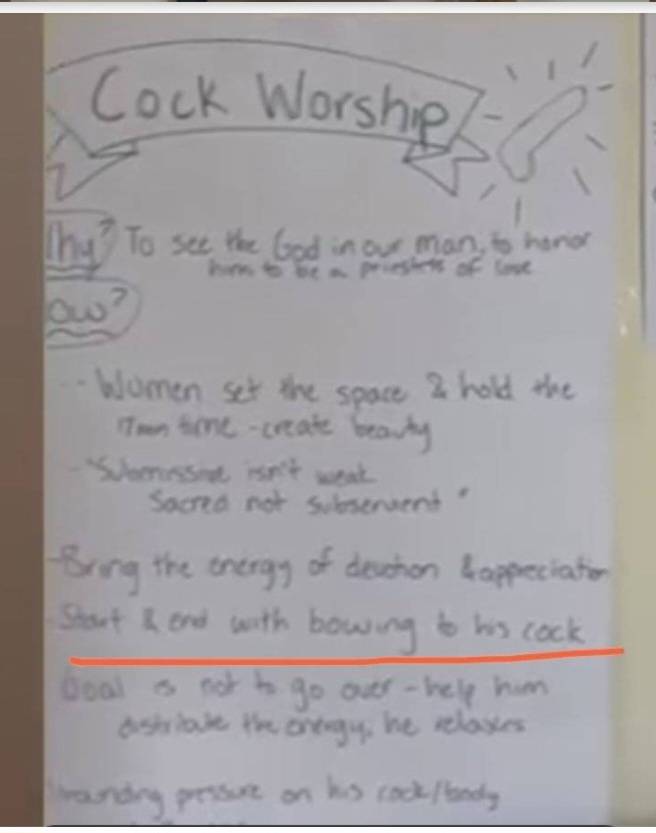 Cock Worship
hy? To see the God in our man, to honor
him to be a priestess of love
ow?
- Women set the space & hold the
time - create beauty
- "Submissive isn't weak
Sacred not subservient"
- Bring the energy of devotion & appreciation
- Start & end with bowing to his cock
Goal is not to go over - help him
distribute the energy, he relaxes
pressure on his cock/body